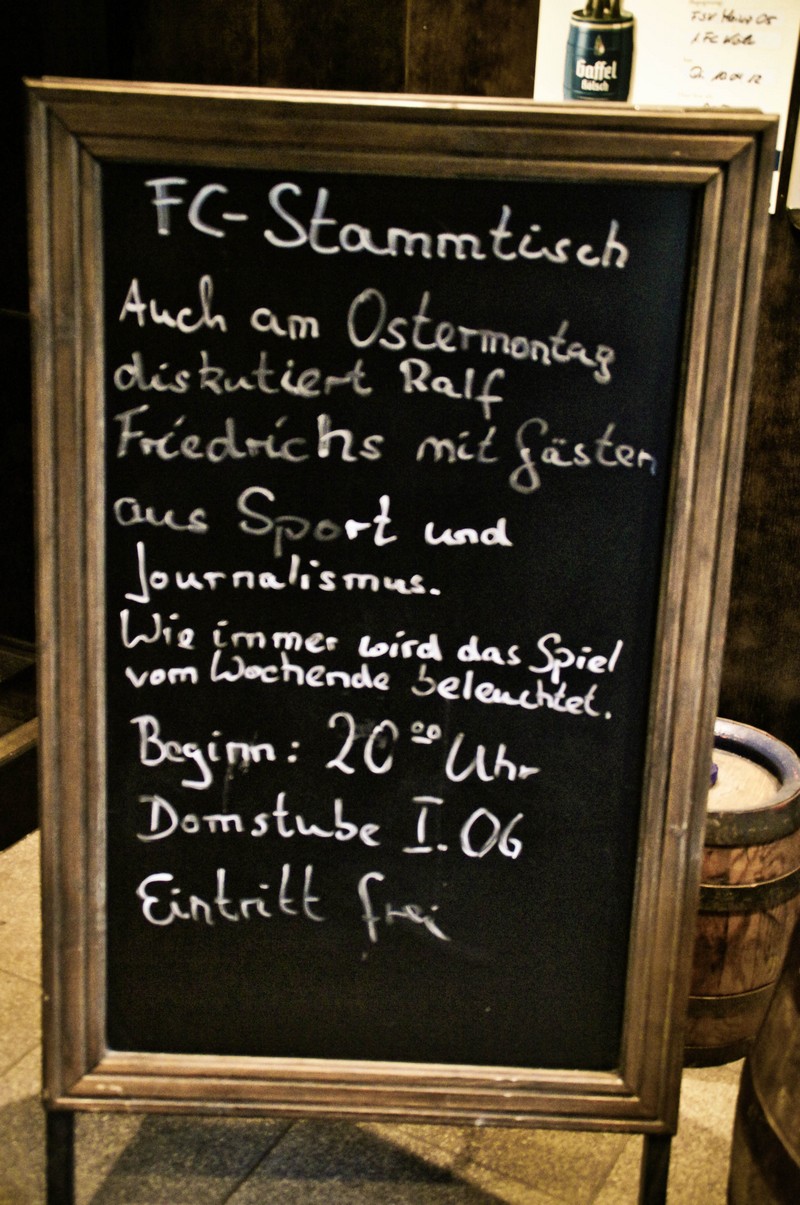 Gaffel
Kölsch
FSV Mainz 05
1 FC Köln
FC-Stammtisch
Auch am Ostermontag
diskutiert Ralf
Friedrichs mit Gästen
aus Sport und
Journalismus.
Wie immer wird das Spiel
vom Wochende beleuchtet.
Beginn: 20⁰⁰ Uhr
Domstube I.06
Eintritt frei